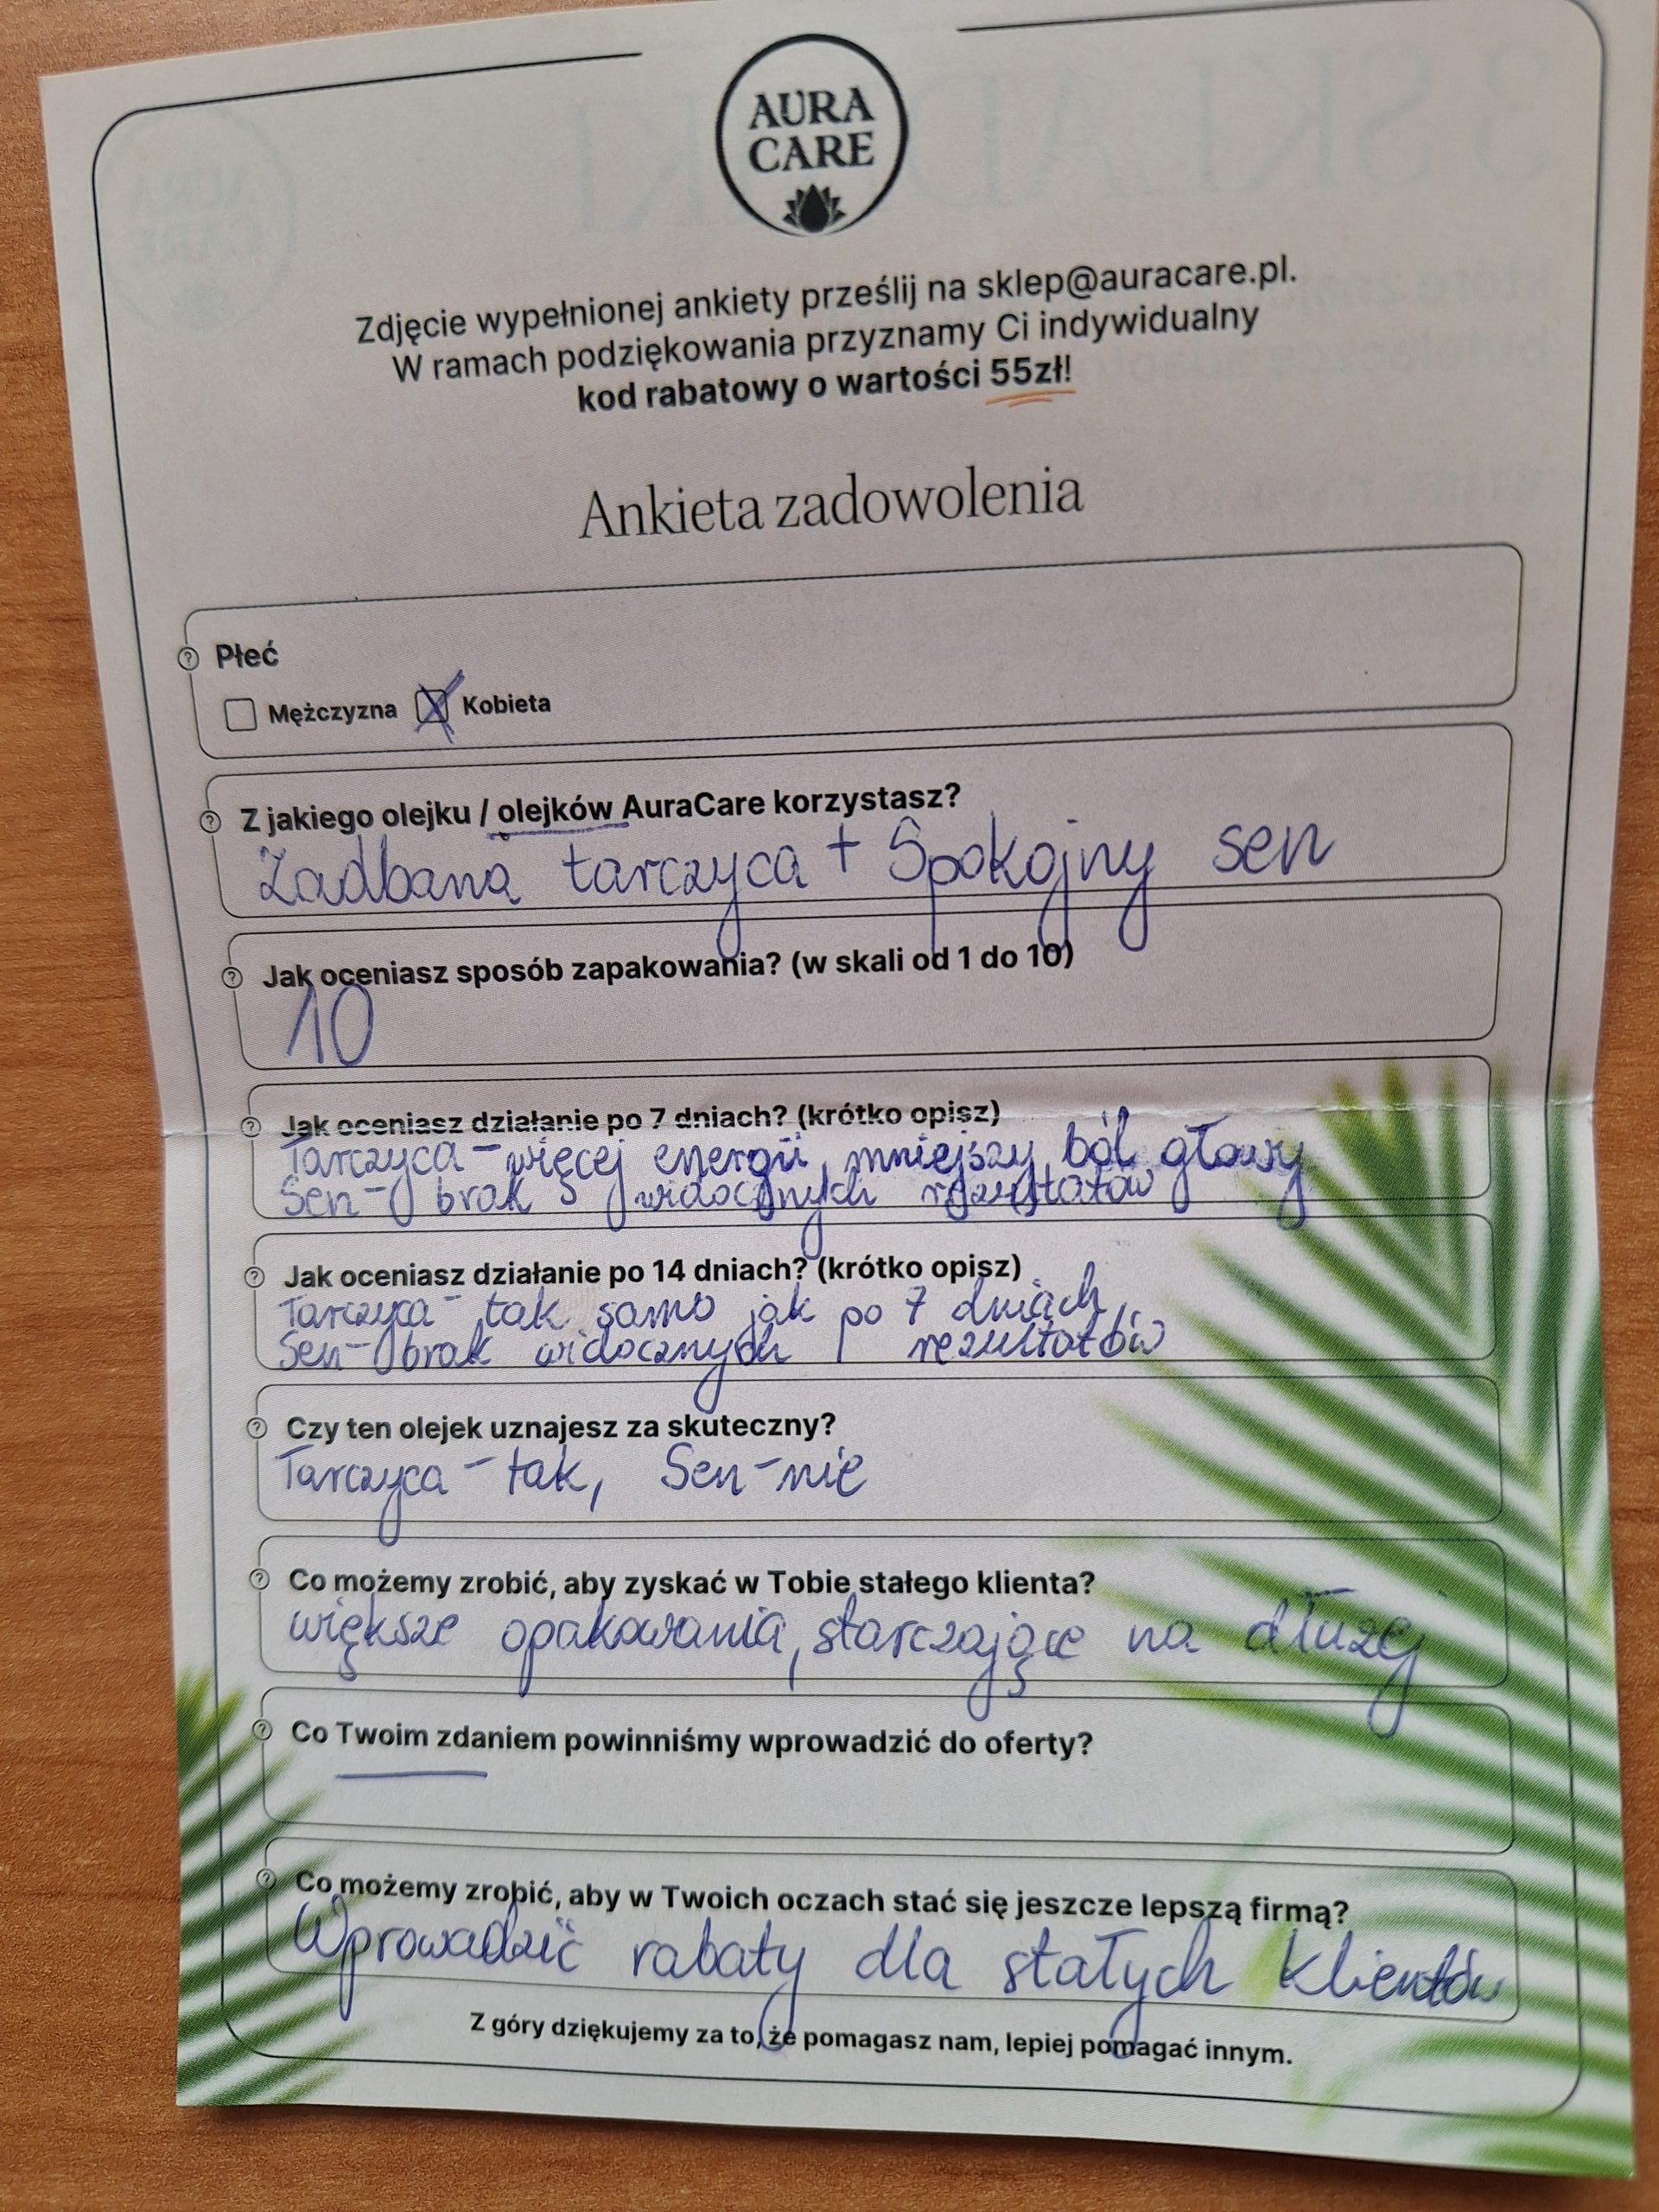 AURA
CARE
Zdjęcie wypełnionej ankiety prześlij na sklep@auracare.pl.
W ramach podziękowania przyznamy Ci indywidualny
kod rabatowy o wartości 55zł!
Ankieta zadowolenia
Płeć
Mężczyzna Kobieta
Z jakiego olejku / olejków AuraCare korzystasz?
Zadbana tarczyca + Spokojny sen
Jak oceniasz sposób zapakowania? (w skali od 1 do 10)
10
Jak oceniasz działanie po 7 dniach? (krótko opisz)
Tarczyca - więcej energii, mniejszy ból głowy
Sen - brak widocznych rezultatów
Jak oceniasz działanie po 14 dniach? (krótko opisz)
Tarczyca - tak samo jak po 7 dniach,
Sen - brak widocznych rezultatów
Czy ten olejek uznajesz za skuteczny?
Tarczyca - tak, Sen - nie
Co możemy zrobić, aby zyskać w Tobie stałego klienta?
większe opakowania, starczające na dłużej
Co Twoim zdaniem powinniśmy wprowadzić do oferty?
Co możemy zrobić, aby w Twoich oczach stać się jeszcze lepszą firmą?
Wprowadzić rabaty dla stałych klientów
Z góry dziękujemy za to, że pomagasz nam, lepiej pomagać innym.